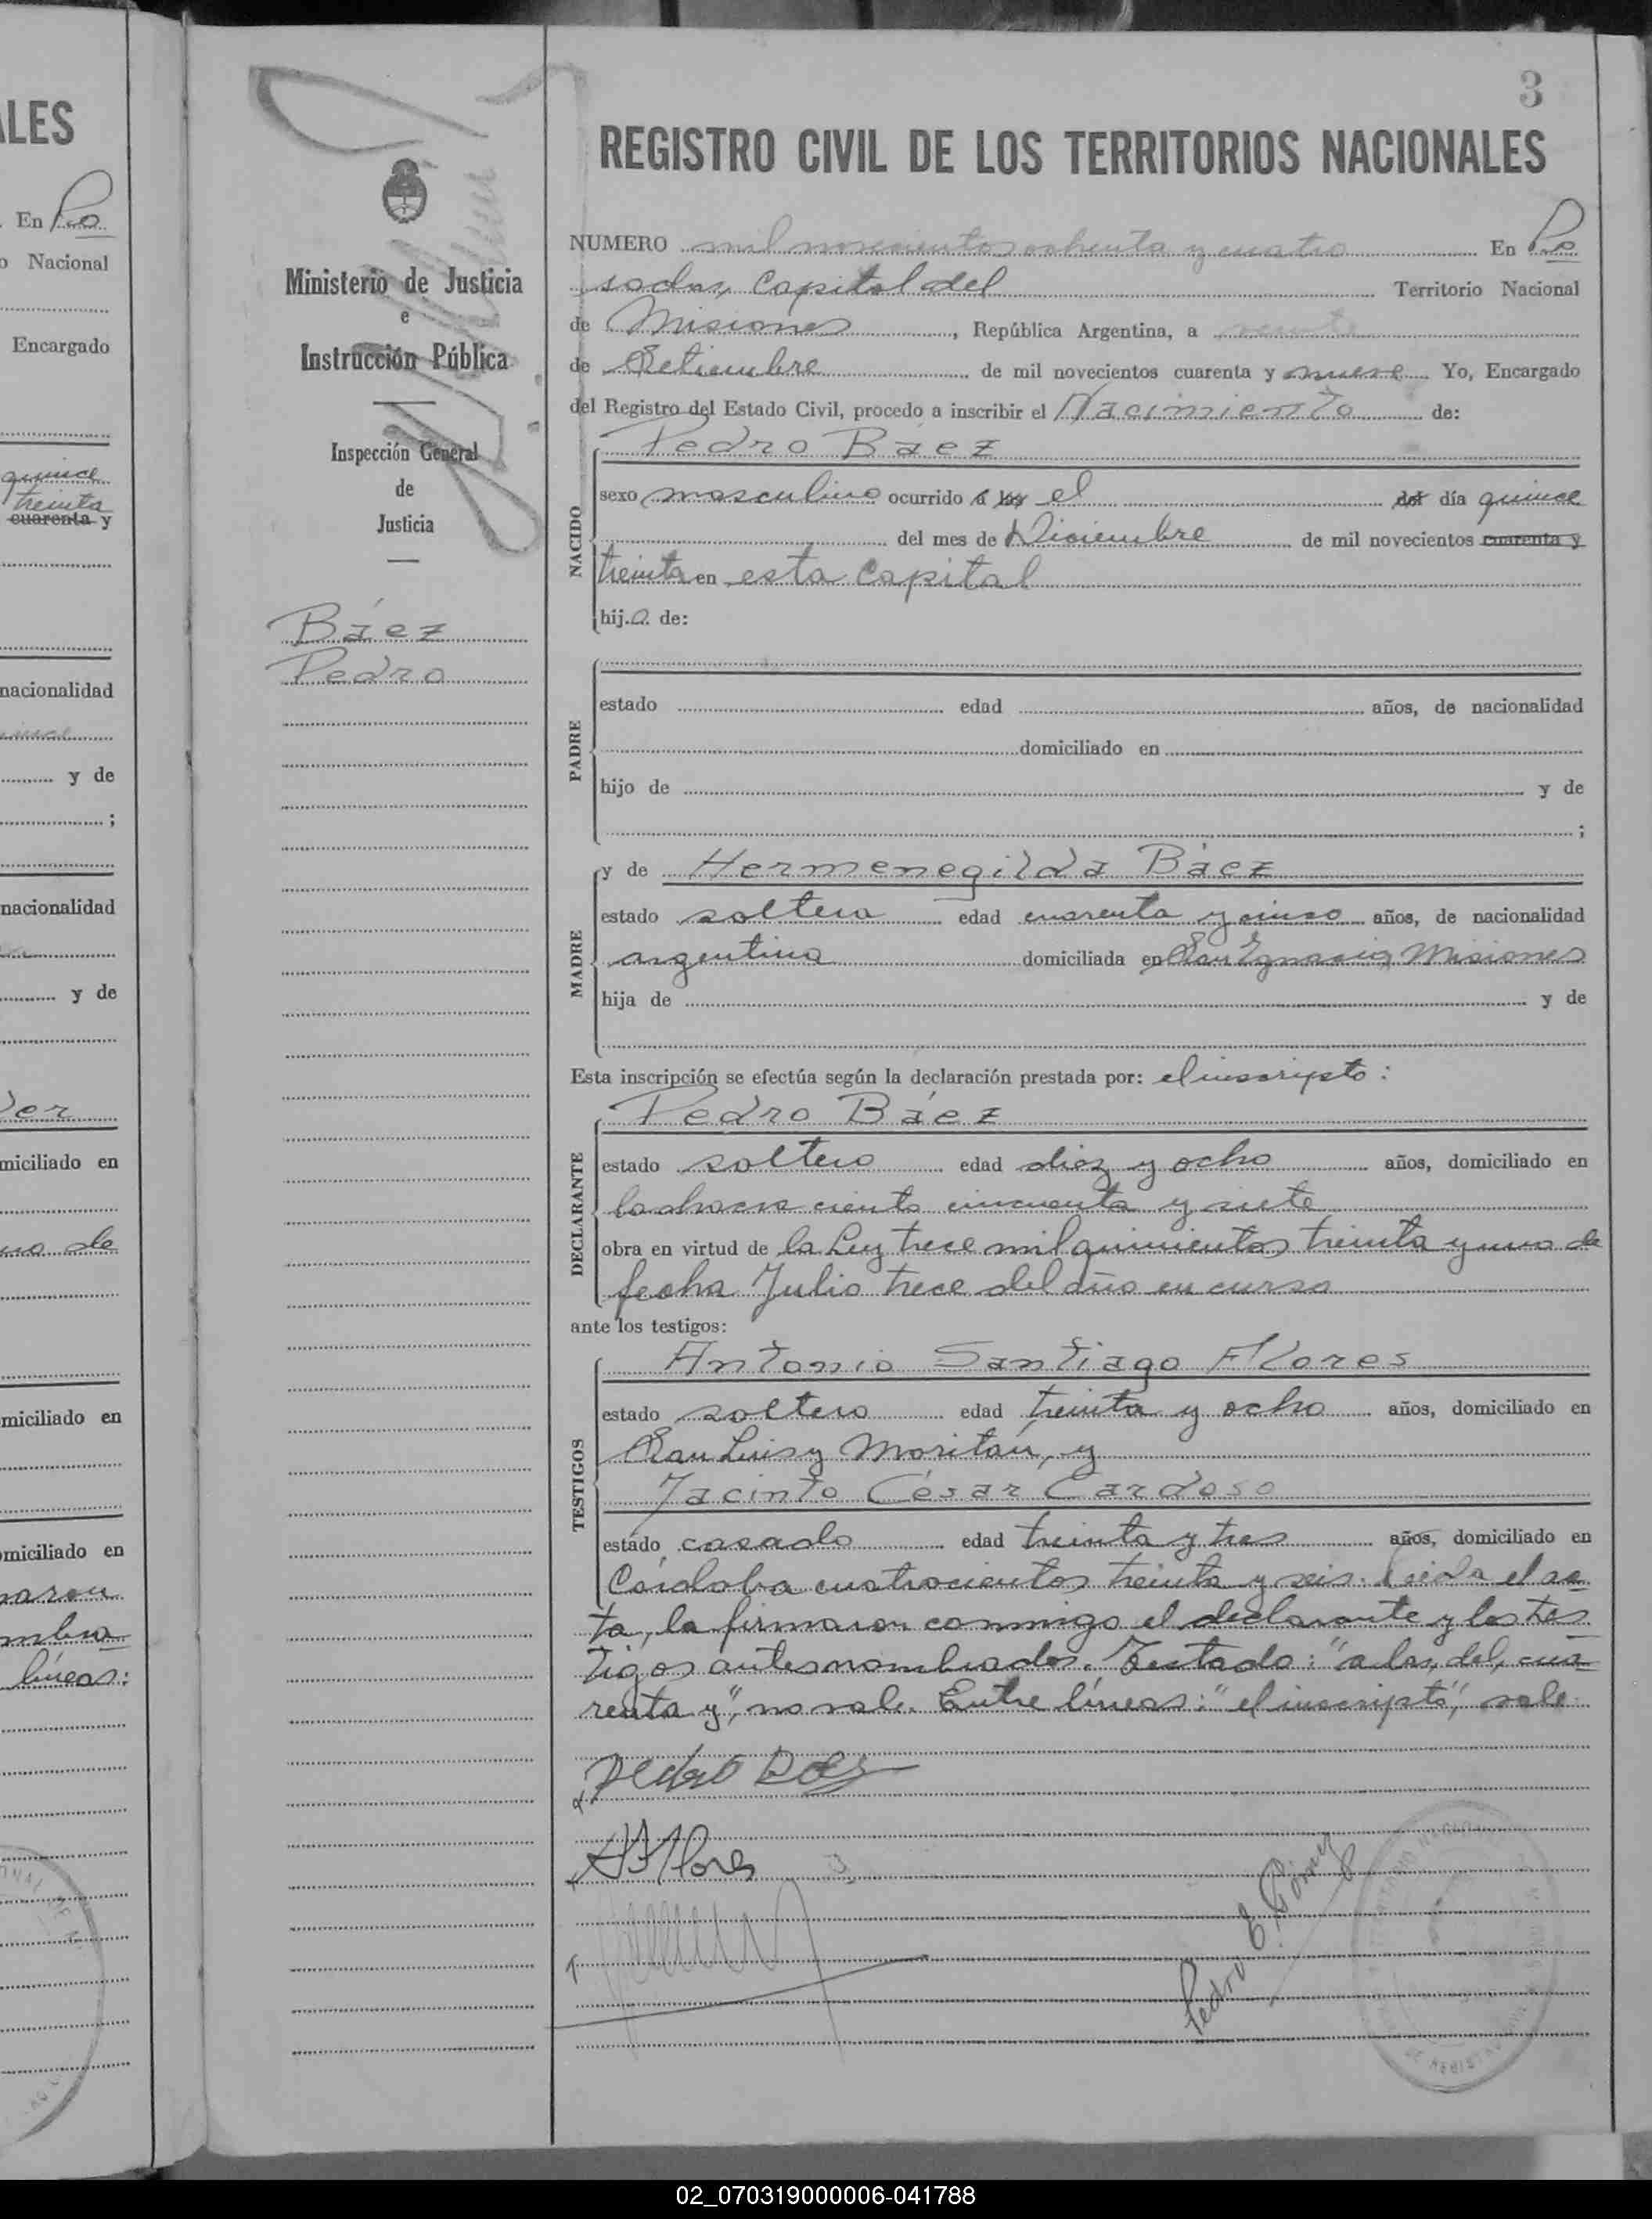 ALES
En Po
o Nacional
Encargado
quince
treinta
cuarenta y
nacionalidad
y de
;
nacionalidad
y de
miciliado en
uno de
miciliado en
omiciliado en
maron
líneas:
3
REGISTRO CIVIL DE LOS TERRITORIOS NACIONALES
Ministerio de Justicia
e
Instrucción Pública
Inspección General
de
Justicia
Báez
Pedro
NUMERO mil novecientos ochenta y cuatro En Po
sadas, Capital del Territorio Nacional
de Misiones, República Argentina, a veinte
de Setiembre de mil novecientos cuarenta y nueve Yo, Encargado
del Registro del Estado Civil, procedo a inscribir el Nacimiento de:
Pedro Báez
NACIDO
sexo masculino ocurrido a las el del día quince
del mes de Diciembre de mil novecientos cuarenta y
treinta en esta Capital
hijo de:
PADRE
estado edad años, de nacionalidad
domiciliado en
hijo de y de
;
MADRE
y de Hermenegilda Báez
estado soltera edad cuarenta y cinco años, de nacionalidad
argentina domiciliada en San Ignacio, Misiones
hija de y de
Esta inscripción se efectúa según la declaración prestada por: el inscripto:
DECLARANTE
Pedro Báez
estado soltero edad diez y ocho años, domiciliado en
la chacra ciento cincuenta y siete
obra en virtud de la Ley trece mil quinientos treinta y uno de
fecha Julio trece del año en curso
ante los testigos:
TESTIGOS
Antonio Santiago Flores
estado soltero edad treinta y ocho años, domiciliado en
San Luis y Moritán, y
Jacinto César Cardoso
estado casado edad treinta y tres años, domiciliado en
Córdoba cuatrocientos treinta y seis. Leída el ac
ta, la firmaron conmigo el declarante y los tes
tigos antesnombrados. Testado: "a las, del, cua
renta y", no vale. Entre líneas: "el inscripto", vale
Pedro Baez
ASFlores
Pedro E. Gómez
02_070319000006-041788